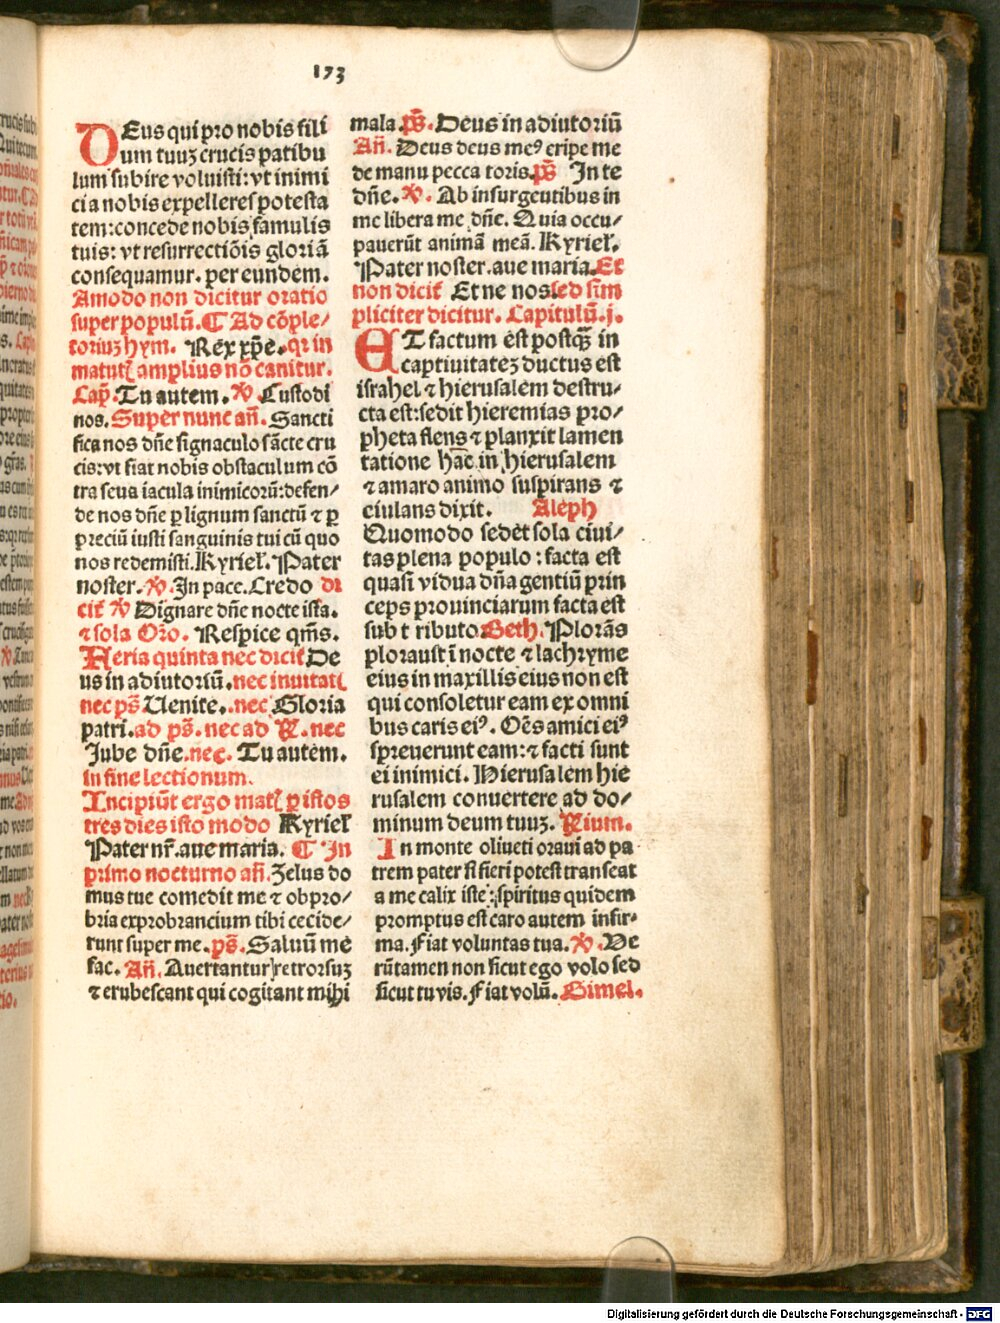 173
DEus qui pro nobis fili
um tuuꝫ crucis patibu
lum subire voluisti: vt inimi
ci a nobis expelleres potesta
tem: concede nobis famulis
tuis: vt resurrectiōis gloriā
consequamur. per eundem.
Amodo non dicitur oratio
super populū. ¶ Ad cōple/
toriuꝫ hym. Rex xp̄e. qr in
matut̄ amplius nō canitur.
Cap̄. Tu autem. ℣ Custodi
nos. Super nunc añ. Sancti
fica nos dñe signaculo sācte cru
cis: vt fiat nobis obstaculum cō
tra seua iacula inimicorū: defen/
de nos dñe ꝑ lignum sanctū ⁊ ꝑ
preciū iusti sanguinis tui cū quo
nos redemisti. Kyriel̄. Pater
noster. ℣. In pace. Credo di
cit̄ ℣ Dignare dñe nocte ista.
⁊ sola Oro. Respice qm̄s.
Feria quinta nec dicit̄ De
us in adiutoriū. nec inuitat̄
nec ps̄ Uenite. nec Gloria
patri. ad ps̄. nec ad ℟. nec
Jube dñe. nec. Tu autem.
in fine lectionum.
Incipiūt ergo mat̄ ꝑ istos
tres dies isto modo Kyriel̄
Pater nr̄. aue maria. ¶ In
primo nocturno añ. Zelus do
mus tue comedit me ⁊ obpro/
bria exprobrancium tibi cecide/
runt super me. ps̄. Saluū me
fac. Añ. Auertantur retrorsuꝫ
⁊ erubescant qui cogitant mihi
mala. ps̄. Deus in adiutoriū
Añ. Deus deus meꝰ eripe me
de manu pecca toris. ps̄ In te
dñe. ℣. Ab insurgentibus in
me libera me dñe. Quia occu/
pauerūt animā meā. Kyriel̄.
Pater noster. aue maria. Et
non dicit̄ Et ne nos sed sim
pliciter dicitur. Capitulū. j.
ET factum est postqꝫ in
captiuitateꝫ ductus est
israhel ⁊ hierusalem destru/
cta est: sedit hieremias pro/
pheta flens ⁊ planxit lamen
tatione hāc in hierusalem
⁊ amaro animo suspirans ⁊
eiulans dixit. Aleph
Quomodo sedet sola ciui/
tas plena populo: facta est
quasi vidua dña gentiū prin
ceps prouinciarum facta est
sub t ributo. Beth. Plorās
plorauit ī nocte ⁊ lachryme
eius in maxillis eius non est
qui consoletur eam ex omni
bus caris eiꝰ. Oēs amici eiꝰ
spreuerunt eam: ⁊ facti sunt
ei inimici. Hierusalem hie
rusalem conuertere ad do/
minum deum tuuꝫ. ℟ium.
In monte oliueti oraui ad pa
trem pater si fieri potest transeat
a me calix iste: spiritus quidem
promptus est caro autem infir-
ma. Fiat voluntas tua. ℣. Ve
rūtamen non sicut ego volo sed
sicut tu vis. Fiat volū. Gimel.
Digitalisierung gefördert durch die Deutsche Forschungsgemeinschaft - DFG